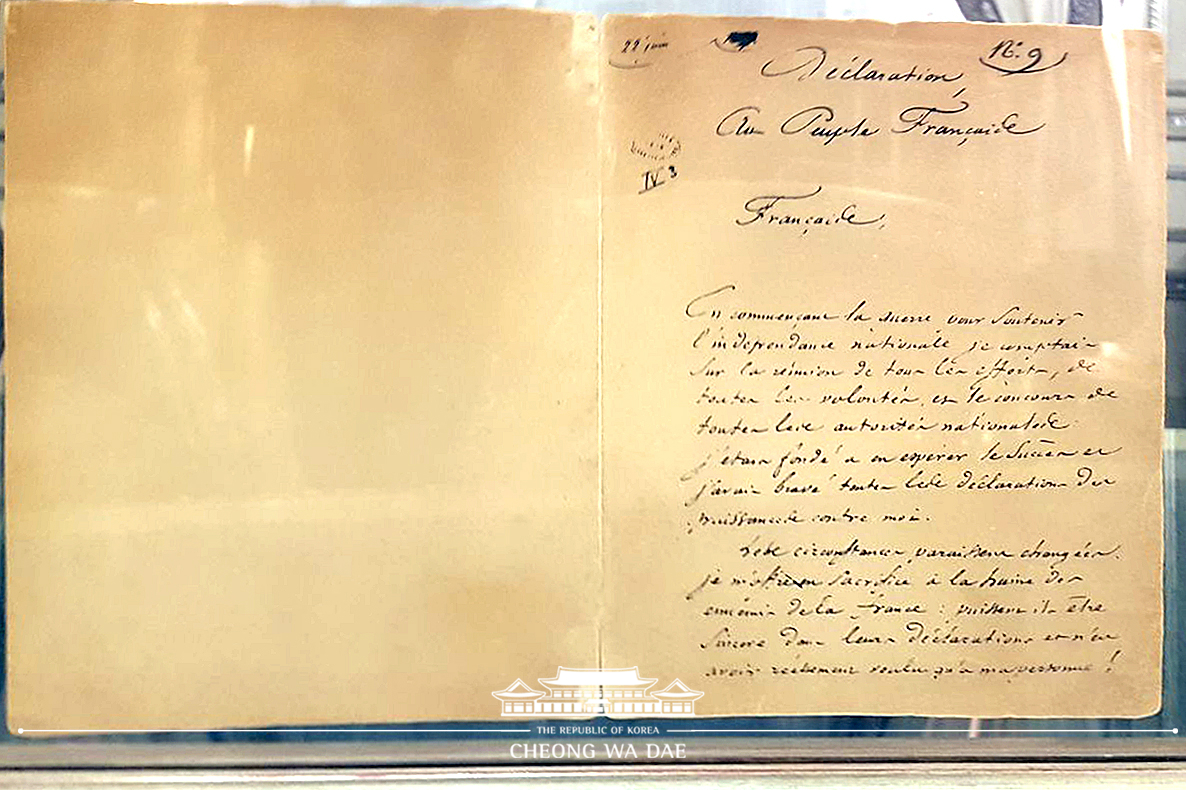 22 juin
N.° 9
Déclaration
Au Peuple Français
IV 3
Français,
En commençant la guerre pour soutenir
l'indépendance nationale je comptais
sur la réunion de tous les efforts, de
toutes les volontés, et le concours de
toutes les autorités nationales
j'étais fondé à en espérer le succès et
j'avais bravé toutes les déclarations des
puissances contre moi.
Les circonstances paraissent changées.
je m'offre en sacrifice à la haine des
ennemis de la france : puissent ils être
sincères dans leurs déclarations et n'en
avoir réellement voulu qu'à ma personne !
THE REPUBLIC OF KOREA
CHEONG WA DAE